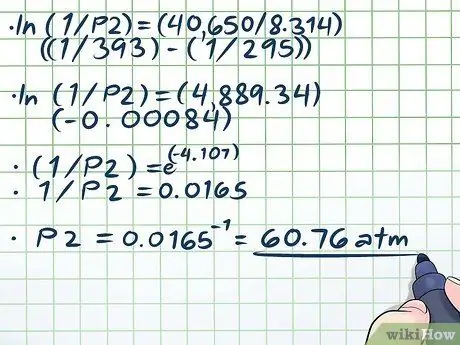 ·ln (1/P2) = (40,650/8.314)
((1/393) - (1/295))
·ln (1/P2) = (4,889.34)
(-0.00084)
· (1/P2) = e^(-4.107)
· 1/P2 = 0.0165
· P2 = 0.0165⁻¹ = 60.76 atm
wikiHow